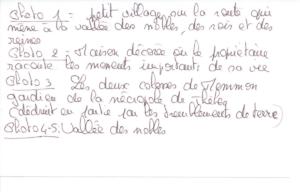 Photo 1 = petit village sur la route qui
mène à la vallée des nobles, des rois et des
reines
Photo 2 = Maison décorée où le propriétaire
raconte les moments importants de sa vie
Photo 3 Les deux colosses de Memnon
gardien de la nécropole de Thèbes
(détruit en partie par les tremblements de terre)
Photo 4-5: Vallée des nobles